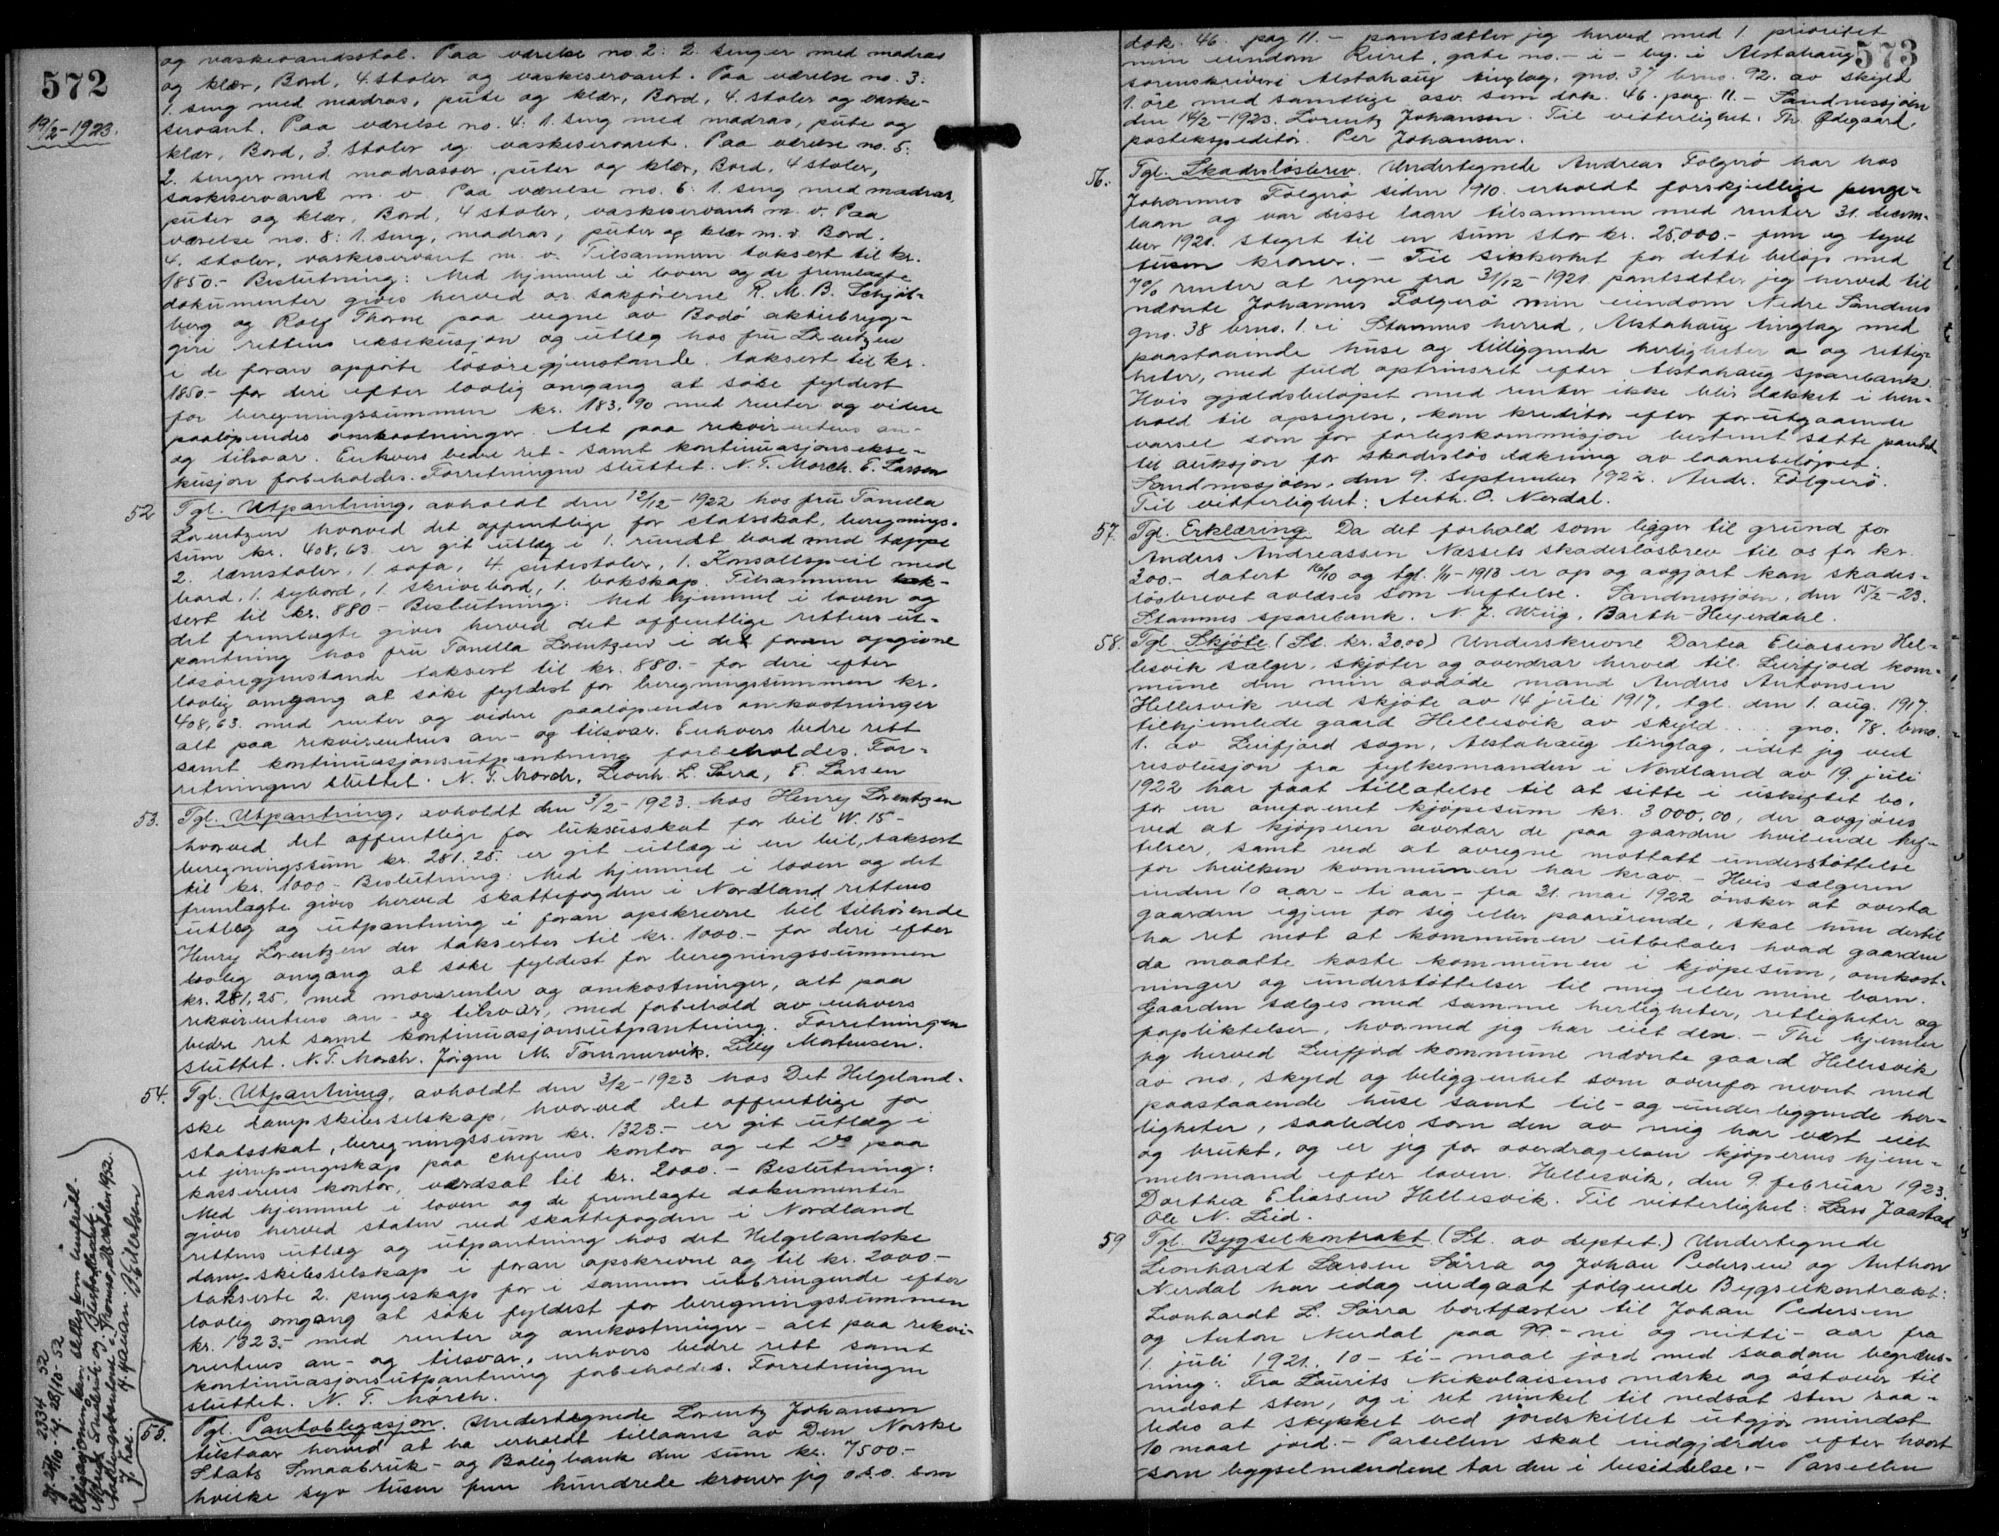 572
19/2-1923.
og vaskevandsstol. Paa værelse no 2: 2. senger med madras
og klær, Bord, 4 stoler og vaskeservant. Paa værelse no. 3:
1. seng med madras, pute og klær, Bord, 4. stoler og vaske-
servant. Paa værelse no. 4: 1. seng med madras, pute og
klær, Bord, 3 stoler og vaskeservant. Paa værelse no. 5:
2. senger med madrasser, puter og klær, Bord, 4 stoler,
vaskeservant m. v. Paa værelse no. 6: 1. seng med madras,
puter og klær, Bord, 4 stoler, vaskeservant m. v. Paa
værelse no. 8: 1. seng, madras, puter og klær m. v. Bord.
4. stoler, vaskeservant m. v. Tilsammen taksert til kr.
1850.- Beslutning: Med hjemmel i loven og de fremlagte
dokumenter gives herved or. sakførerne R. M. B. Schjøl-
berg og Rolf Thorne paa vegne av Bodø aktiebryg-
geri rettens eksekusjon og utlæg hos fru Lorentzen
i de foran opførte løsøregjenstande taksert til kr.
1850.- for deri efter lovlig omgang at søke fyldest
for beregningssummen kr. 183,90 med renter og videre
paaløpendes omkostninger. Alt paa rekvirentens an-
og tilsvar. Enhvers bedre ret- samt kontinuasjonsekse-
kusjon forbeholdes. Forretningen sluttet. N. T. Mørch. E. Larsen
52 Tgl. Utpantning, avholdt den 12/12-1922 hos fru Tonella
Lorentzen hvorved det offentlige for statsskat, beregnings-
sum kr. 408,63. er git utlæg i 1. rundt bord med tæppe
2. lænstoler, 1. sofa, 4. putestoler, 1. Konsollspeil med
bord, 1. sybord, 1. skrivebord, 1. bokskap. Tilsammen tak-
sert til kr. 880.- Beslutning: Med hjemmel i loven og
det fremlagte gives herved det offentlige rettens ut-
pantning hos fru Tonella Lorentzen i det foran opgivne
løsøregjenstande taksert til kr. 880.- for deri efter
lovlig omgang at søke fyldest for beregningssummen kr.
408,63. med renter og videre paaløpendes omkostninger
alt paa rekvirentens an- og tilsvar. Enhvers bedre rett
samt kontinuasjonsutpantning forbeholdes. For-
retningen sluttet. N. T. Mørch, Leonh. L. Sørra, E. Larsen
53. Tgl. Utpantning, avholdt den 3/2-1923. hos Henry Lorentzen
hvorved det offentlige for luksusskat for bil W. 15-
beregningssum kr. 281.25. er git utlæg i en bil, taksert
til kr. 1000.- Beslutning: Med hjemmel i loven og det
fremlagte gives herved skattefogden i Nordland rettens
utlæg og utpantning i foran opskrevne bil tilhørende
Henry Lorentzen der taksertes til kr. 1000.- for deri efter
lovlig omgang at søke fyldest for beregningssummen
kr. 281,25. med morarenter og omkostninger, alt paa
rekvirentens an- og tilsvar, med forbehold av enhvers
bedre ret samt kontinuasjonsutpantning. Forretningen
sluttet. N. T. Mørch. Jørgen M. Tømmervik. Lilly Mortensen.
54. Tgl. Utpantning, avholdt den 3/2-1923 hos Det Helgeland-
ske dampskibsselskap, hvorved det offentlige for
statsskat, beregningssum kr. 1323.- er git utlæg i
et jernpengeskap paa chefens kontor og et Do paa
kassererens kontor, værdsat til kr. 2000.- Beslutning:
Med hjemmel i loven og de fremlagte dokumenter
gives herved staten ved skattefogden i Nordland
rettens utlæg og utpantning hos det Helgelandske
dampskibsselskap i foran opskrevne og til kr. 2000.-
takserte 2. pengeskap for i sammes utbringende efter
lovlig omgang at søke fyldest for beregningssummen
kr. 1323.- med renter og omkostninger - alt paa rekvi-
rentens an- og tilsvar, enhvers bedre rett samt
kontinuasjonsutpantning forbeholdes. Forretningen
sluttet. N. T. Mørch.
55. Tgl. Pantobligasjon. Undertegnede Lorentz Johansen
tilstaar herved at ha erholdt tillaans av Den Norske
Stats Smaabruk- og Boligbank den sum kr. 7500.-
hvilke syv tusen fem hundrede kroner jeg o.s.v. som
Obligasjonen kan slettes som innfriell.
Norges Småbruk og
573
dok. 46. pag 11.- pantsætter jeg herved med 1. prioritet
min eiendom Reiret, gate no.- i- by. i Alstahaug
sorenskriveri Alstahaug tinglag, gno. 37 brno. 92. av skyld
1. øre med samtlige osv. som dok. 46. pag. 11.- Sandnessjøen
den 14/2-1923. Lorentz Johansen. Til vitterlighet: Th. Ødegaard,
postekspeditør. Per Johansen.
56. Tgl. Skadesløsbrev. Undertegnede Andreas Folgerø har hos
Johannes Folgerø siden 1910. erholdt forskjellige penge-
laan og var disse laan tilsammen med renter 31. decem-
ber 1921. steget til en sum stor kr. 25.000.- fem og tyve
tusen kroner. - Til sikkerhet for dette beløp med
7% renter at regne fra 31/12-1921. pantsætter jeg herved til
nævnte Johannes Folgerø min eiendom Nedre Sandnes
gno. 38 brno. 1. i Stamnes herred, Alstahaug tinglag med
paastaaende huse og tilliggende herligheter a og rettig-
heter, med fuld optrinsret efter Alstahaug sparebank.
Hvis gjældsbeløpet med renter ikke blir dækket i hen-
hold til opsigelse, kan kreditor efter forutgaaende
varsel som for forligskommisjon bestemt sætte pantet
til auksjon for skadesløs dækning av laanebeløpet.
Sandnessjøen, den 9. september 1922. Andr. Folgerø.
Til vitterlighet: Anth. O. Nerdal.
57. Tgl. Erklæring. Da det forhold som ligger til grund for
Anders Andreassen Næssets skadesløsbrev til os for kr.
300.- datert 16/10 og tgl. 1/11-1913 er op og avgjort kan skades-
løsbrevet avlæses som heftelse. Sandnessjøen, den 15/2-23.
Stamnes sparebank. N. J. Wiig, Barth-Heyerdahl.
58. Tgl. Skjøte (St. kr. 30.00) Underskrevne Dortea Eliassen Hel-
lesvik sælger, skjøter og overdrar herved til Leirfjord kom-
mune den min avdøde mand Anders Antonsen
Hellesvik ved skjøte av 14 juli 1917, tgl. den 1. aug. 1917.
tilhjemlede gaard Hellesvik av skyld .... gno. 78. brno.
1. av Leirfjord sogn, Alstahaug tinglag, idet jeg ved
resolusjon fra fylkesmanden i Nordland av 19. juli
1922 har faat tillatelse til at sitte i uskiftet bo,
for en omforenet kjøpesum kr. 3000,00, der avgjøres
ved at kjøperen overtar de paa gaarden hvilende hef-
telser, samt ved at avregne mottatt understøttelse
for hvilken kommunen har krav. - Hvis sælgeren
inden 10 aar - ti aar - fra 31. mai 1922 ønsker at overta
gaarden igjen for sig eller paarørende, skal hun dertil
ha ret mot at kommunen utbetales hvad gaarden
da maatte koste kommunen i kjøpesum, omkost-
ninger og understøttelser til meg eller mine barn.
Gaarden sælges med samme herligheter, rettigheter og
forpliktelser, hvormed jeg har eiet den. - Thi hjemler
jeg herved Leirfjord kommune nævnte gaard Hellesvik
av no., skyld og beliggenhet som ovenfor nevnt med
paastaaende huse samt til- og underliggende her-
ligheter, saaledes som den av mig har vært eiet
og brukt, og er jeg for overdragelsen kjøperens hjem-
melsmand efter loven. Hellesvik, den 9 februar 1923.
Dorthea Eliassen Hellesvik. Til vitterlighet: Lars Jaastad
Ole N. Leid.
59 Tgl. Bygselkontrakt (St. av deptet.) Undertegnede
Leonhardt Larsen Sørra og Johan Pedersen og Anthon
Nerdal har idag indgaat følgende Bygselkontrakt:
Leonhardt L. Sørra bortfæster til Johan Pedersen
og Anton Nerdal paa 99.- ni og nitti- aar fra
1. juli 1921. 10- ti- maal jord med saadan begræns-
ning: Fra Laurits Nikolaisens mærke og østover til
nedsat sten, og i ret vinkel til nedsat sten saa-
ledes at stykket ved jordskillet utgjør mindst
10 maal jord. - Parsellen skal indgjærdes efter hvert
som bygselmændene tar den i besiddelse. - Parsellen